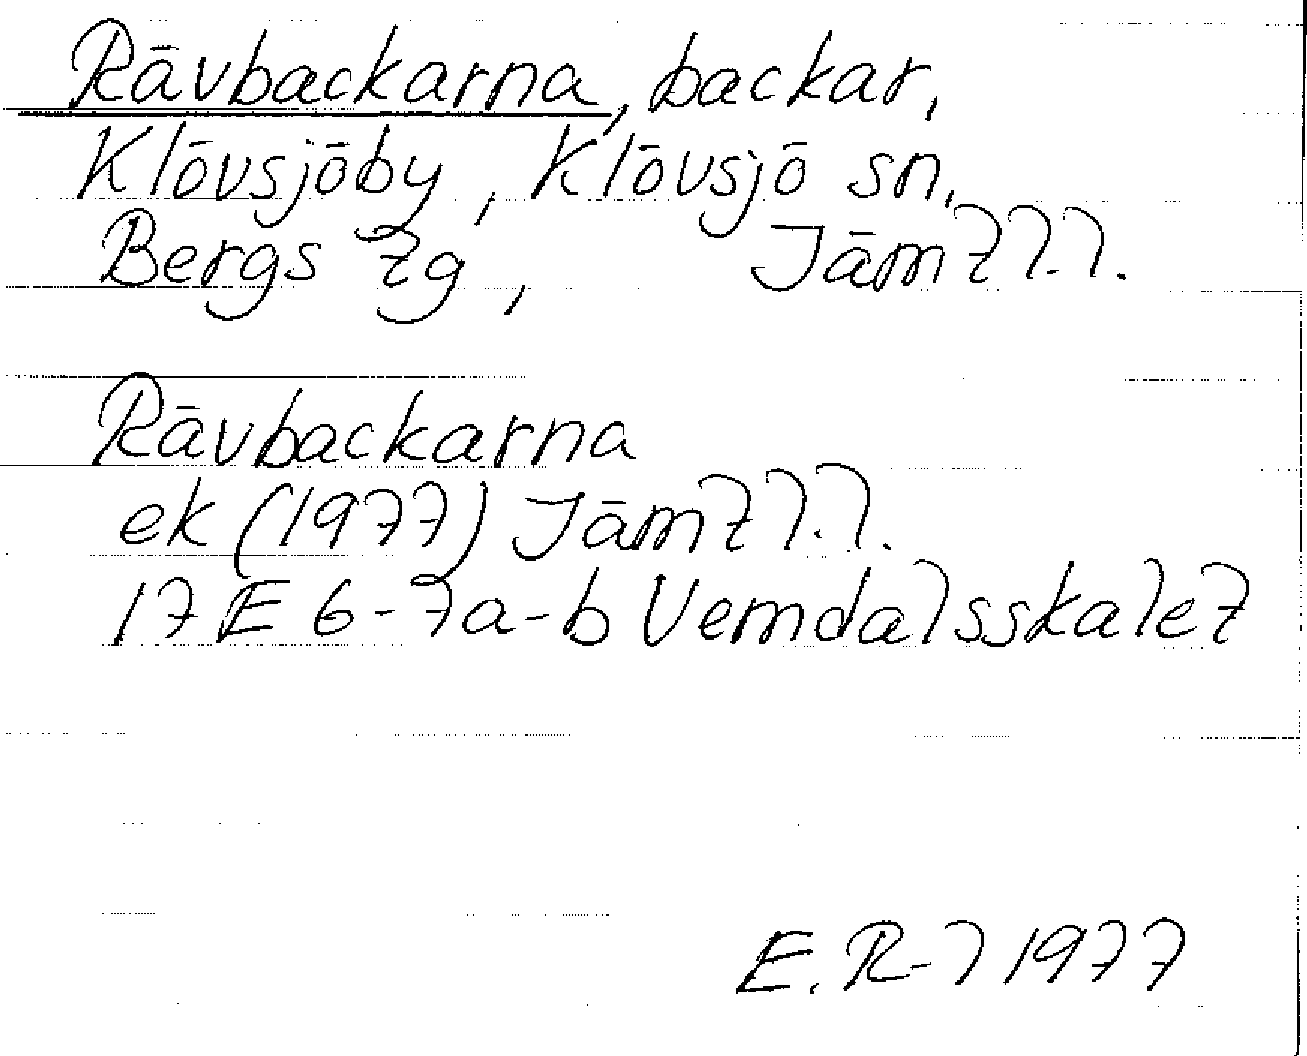 Rävbackarna, backar,
Klövsjöby, Klövsjö sn,
Bergs tg, Jämtl.l.
Rävbackarna
ek (1977) Jämtl.l.
17E 6-7a-b Vemdalsskalet
E. R-l 1977